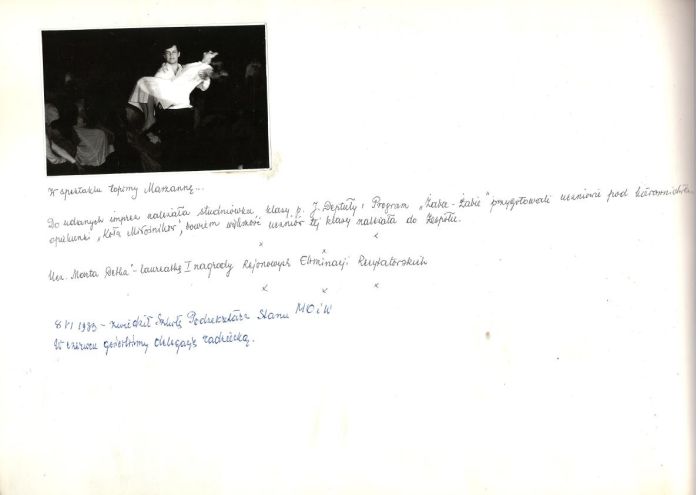 W spektaklu topimy Marzannę...
Do udanych imprez należała studniówka klasy p. J. Deptuły i Program „Żaba - Żabie" przygotowali uczniowie pod kierownictwem
opiekunki „Koła Miłośników", bowiem większość uczniów tej klasy należała do Zespołu.
x x
x
Ucz. Marta - laureatką I nagrody Rejonowych Eliminacji Recytatorskich
x x x
8 VI 1983 - zwiedził Szkołę Podsekretarz Stanu MOiW
W czerwcu gościliśmy delegację radziecką.